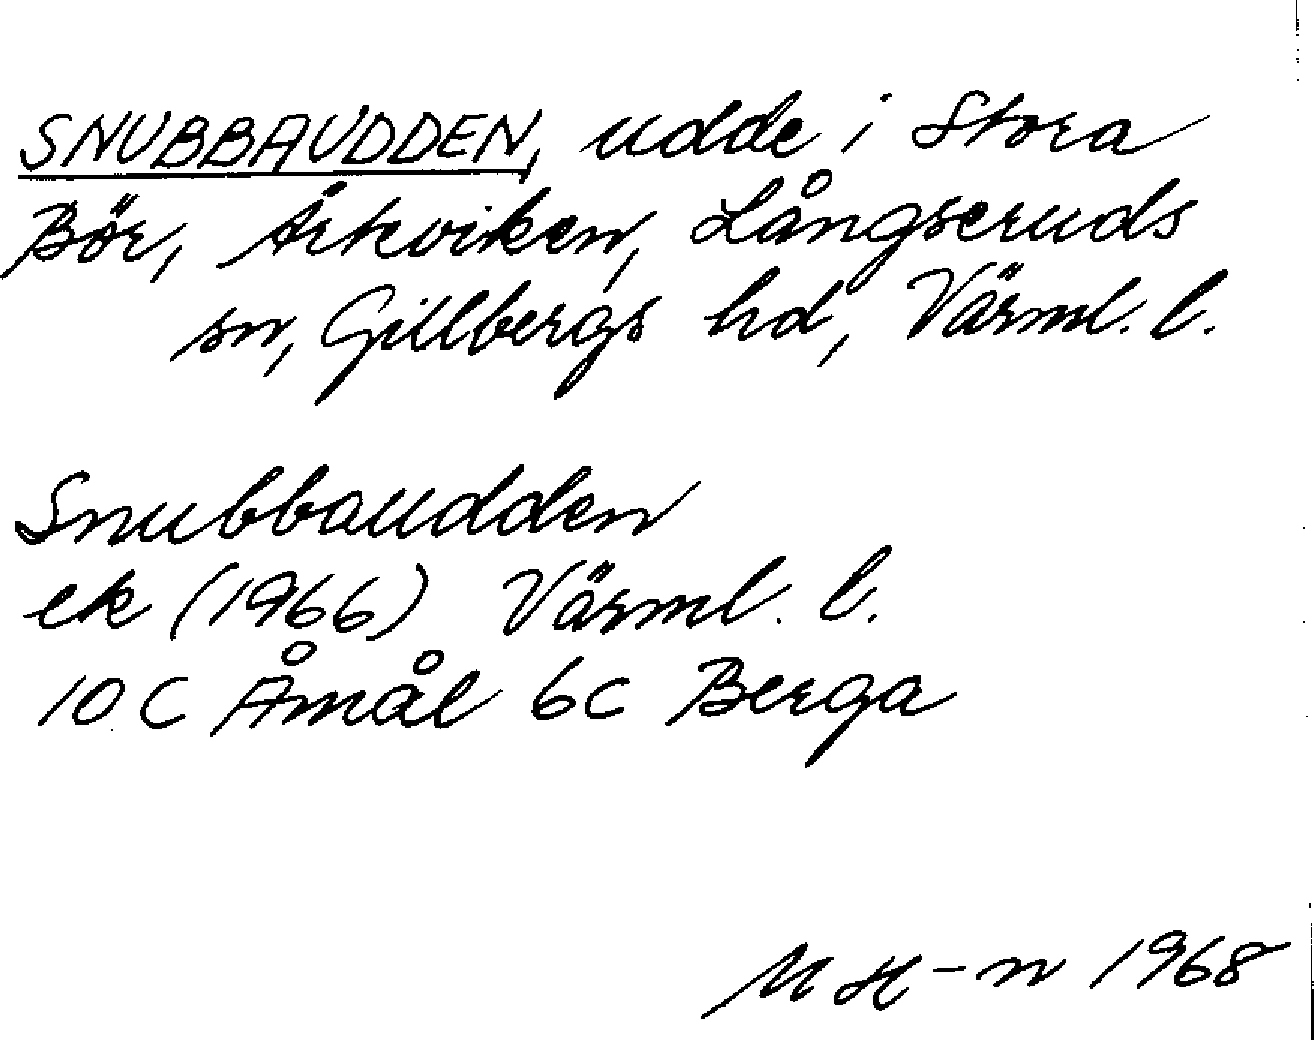 SNUBBAUDDEN, udde i Stora
Bör, Årkviken, Långseruds
sn, Gillbergs hd, Värml. l.
Snubbaudden
ek (1966) Värml. l.
10 C Åmål 6c Berga
M H-n 1968